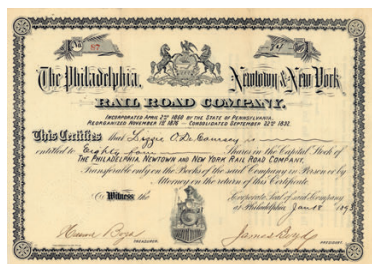 No. 87
The Philadelphia, Newtown & New York
RAIL ROAD COMPANY.
INCORPORATED APRIL 2ND 1860 BY THE STATE OF PENNSYLVANIA.
REORGANIZED NOVEMBER 1ST 1876 - CONSOLIDATED SEPTEMBER 22ND 1892.
This Certifies that Lizzie is
entitled to Eighty Four Shares in the Capital Stock of
THE PHILADELPHIA, NEWTOWN AND NEW YORK RAIL ROAD COMPANY.
Transferable only on the Books of the said Company in Person or by
Attorney on the return of this Certificate
Witness the Corporate Seal of said Company
at Philadelphia, Jan 1893
TREASURER. James Boyd PRESIDENT.